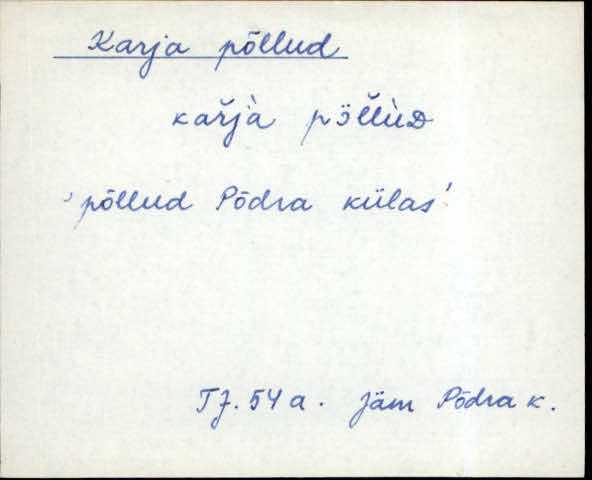 Karja põllud
kař̀jà pö̆l̆lùD
'põllud Põdra külas'
TJ. 54 a. Jäm Põdra k.